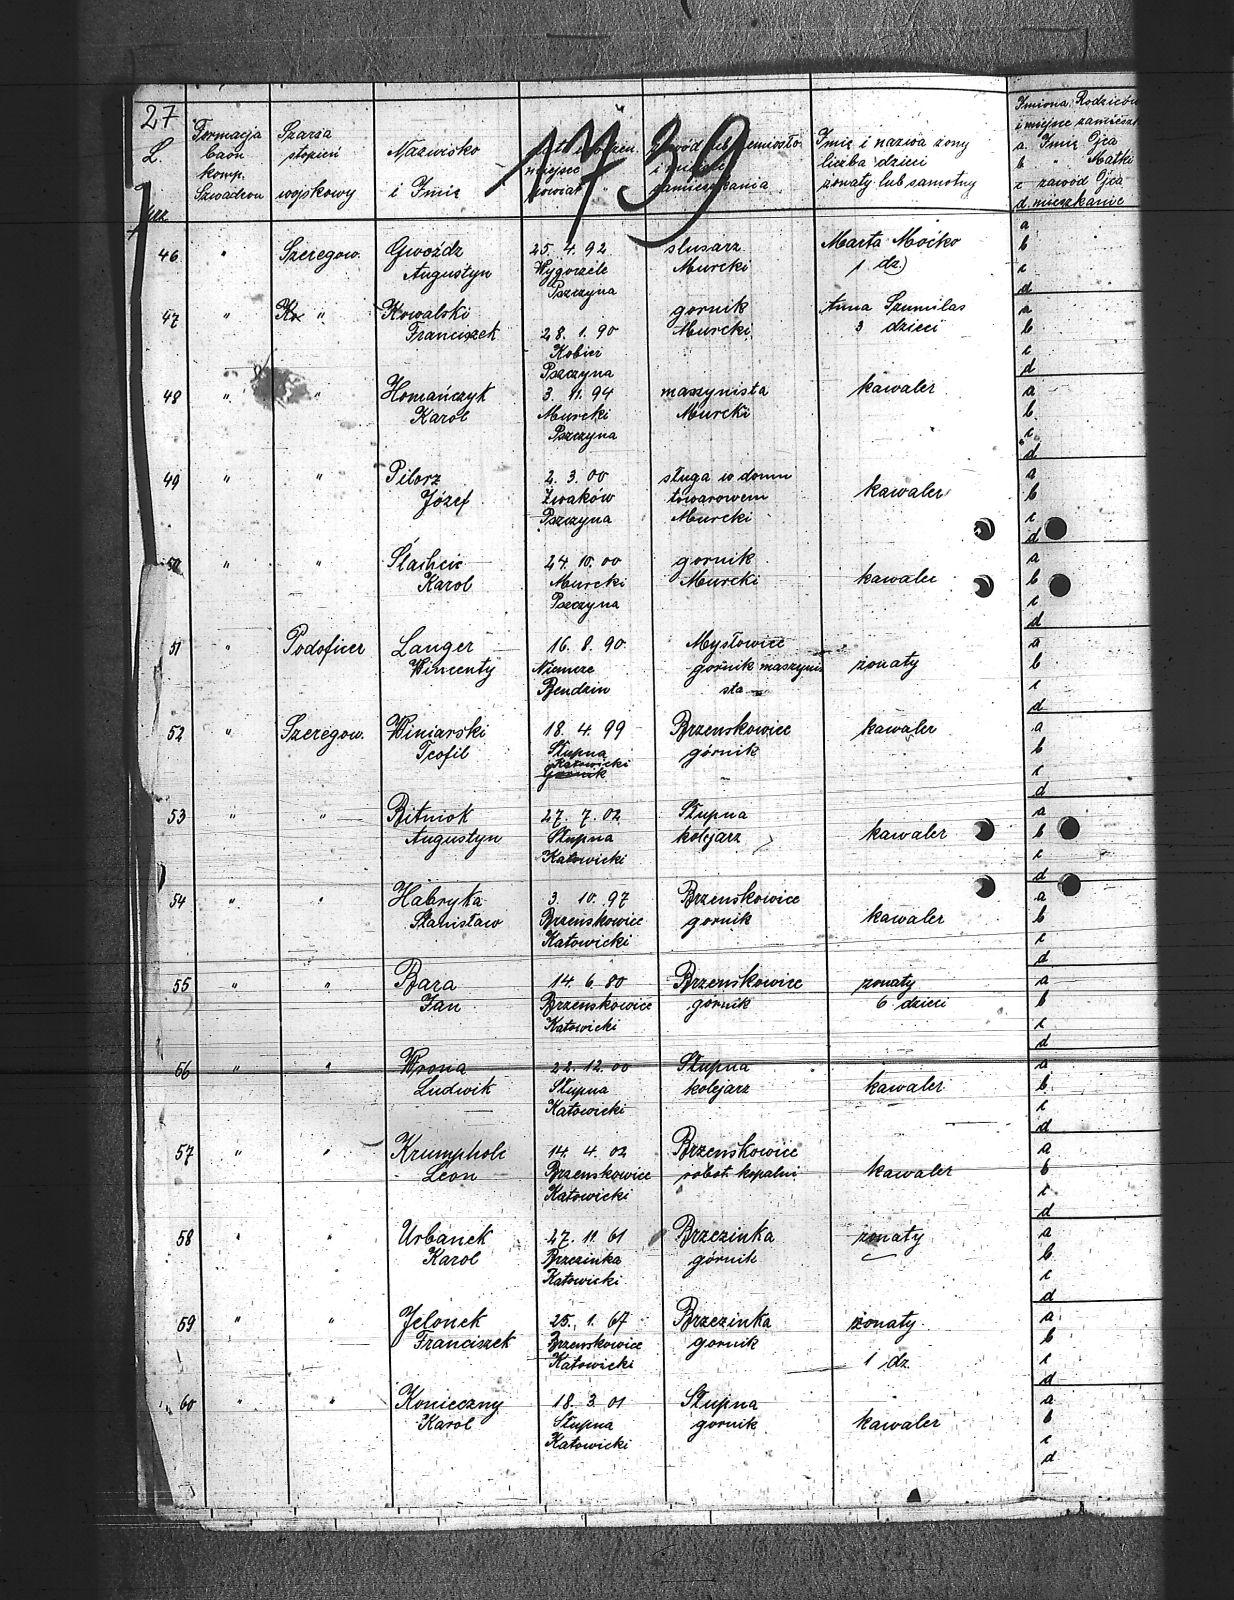 27
1739
L.
Formacja
baon
komp.
Szwadron
Szarża
stopień
wojskowy
Nazwisko
i Imię
miejsce
powiat
zamieszkania
Imię i nazwa żony
liczba dzieci
żonaty lub samotny
Imiona Rodziców
i miejsce zamieszk
a. Imię Ojca
b " Matki
c zawód Ojca
d. mieszkanie
46 " Szeregow. Gwoźdz 25. 4. 92 slusarz Marta Moćko a
Augustyn Wygorzele Murcki 1 dz. b
Pszczyna c
d
47 " " Kowalski gornik Anna Szumilas a
Franciszek 28. 1. 90 Murcki 3 dzieci b
Kobier c
Pszczyna d
48 " " Homańczyk 3. 11. 94 maszynista kawaler a
Karol Murcki Murcki b
Pszczyna c
d
49 " " Pilorz 2. 3. 00 sługa w domu a
Józef Żwaków towarowem kawaler b
Pszczyna Murcki c
d
50 " " Ślachcic 24. 10. 00 gornik a
Karol Murcki Murcki kawaler b
Pszczyna c
d
51 " Podoficer Langer 16. 8. 90 Mysłowice a
Wincenty Niemcze gornik maszyni żonaty b
Bendzin sta c
d
52 " Szeregow. Winiarski 18. 4. 99 Brzenskowice kawaler a
Teofil Słupna górnik b
Katowicki c
gornik d
53 " " Bitniok 27. 7. 02 Słupna a
Augustyn Słupna kolejarz kawaler b
Katowicki c
d
54 " " Habryka 3. 10. 97 Brzenskowice a
Stanisław Brzenskowice gornik kawaler b
Katowicki c
d
55 " " Bara 14. 6. 80 Brzenskowice żonaty a
Jan Brzenskowice górnik 6 dzieci b
Katowicki c
d
56 " " Wrona 22. 12. 00 Słupna a
Ludwik Słupna kolejarz kawaler b
Katowicki c
d
57 " " Krumpholc 14. 4. 02 Brzenskowice a
Leon Brzenskowice robot. kopalni kawaler b
Katowicki c
d
58 " " Urbanek 27. 11. 61 Brzezinka żonaty a
Karol Brzezinka górnik b
Katowicki c
d
59 " " Jelonek 25. 1. 67 Brzezinka żonaty a
Franciszek Brzenskowice gornik b
Katowicki 1 dz c
d
60 " " Konieczny 18. 3. 01 Słupna a
Karol Słupna gornik kawaler b
Katowicki c
d